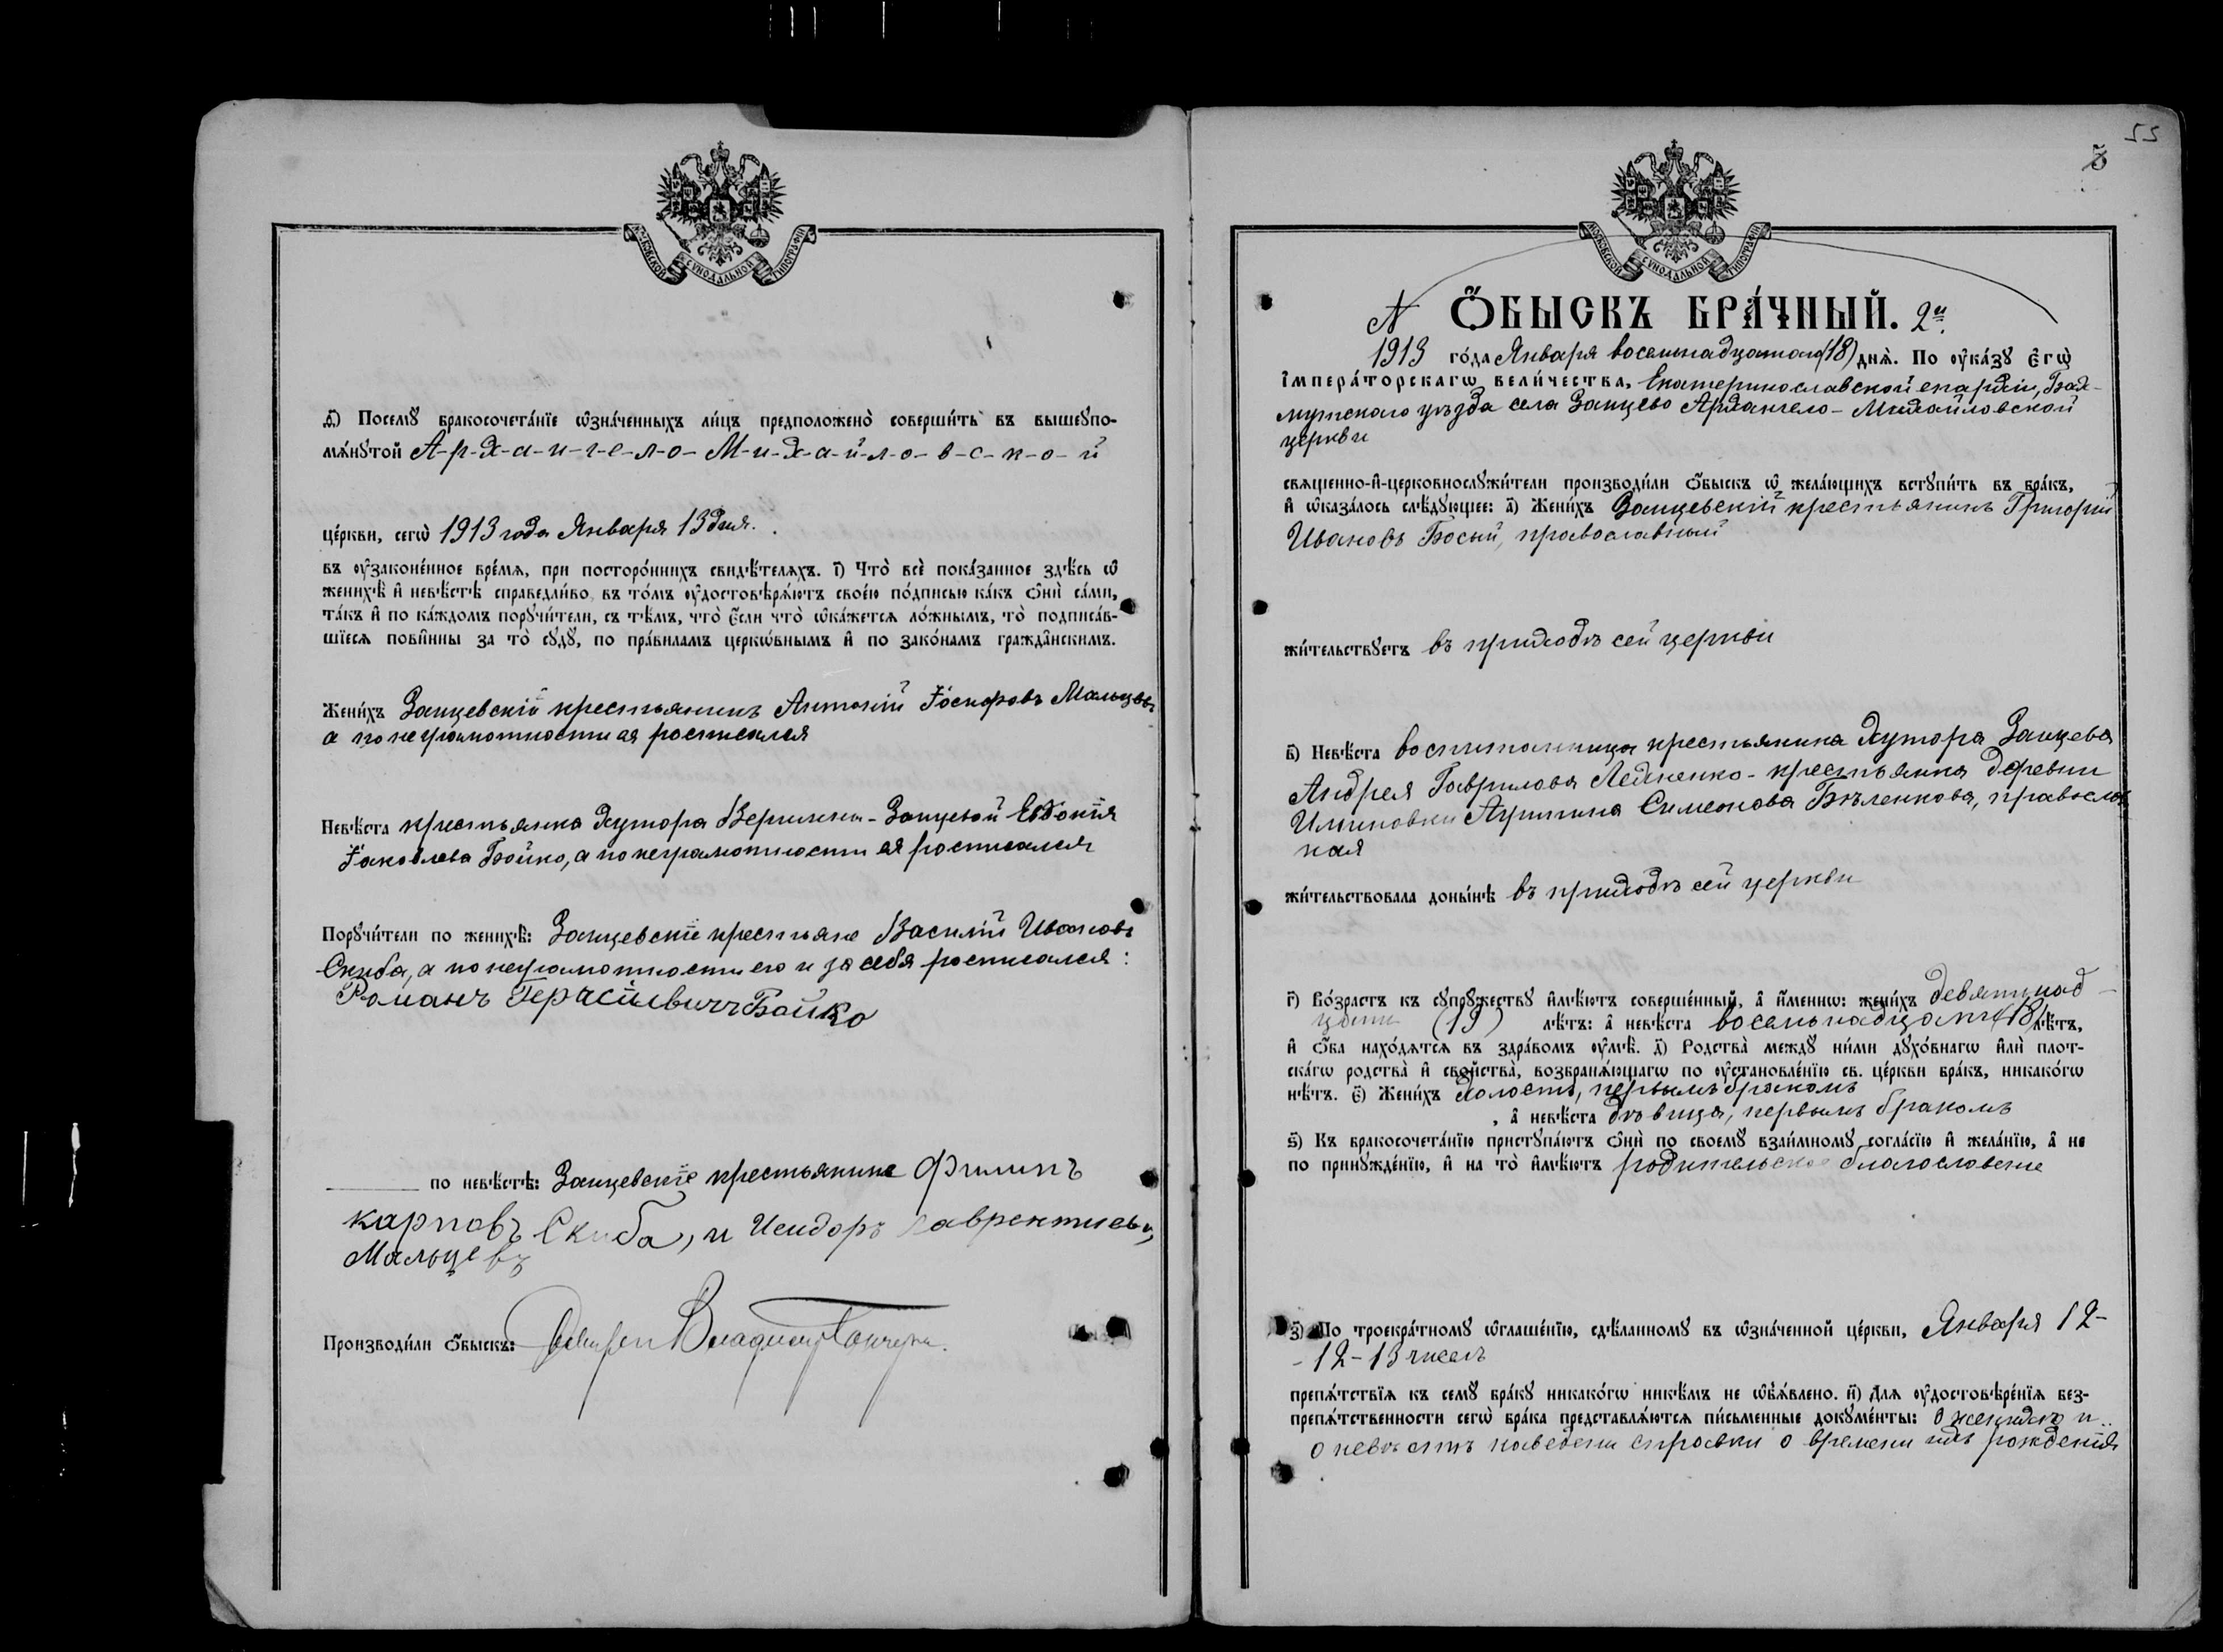 МОСКОВСКОЙ СѴНОДАЛЬНОЙ ТИПОГРАФІИ
ѳ҃) Посемꙋ̀ бракосочета́нїе ѡ҆зна́ченныхъ ли́цъ предположено̀ соверши́ть въ вышеꙋпо-
мѧ́нꙋтой А-р-х-а-н-г-е-л-о- М-и-х-а-й-л-о-в-с-к-о-й
це́ркви, сегѡ̀ 1913 года Января 13 дня.
въ ᲂу҆законе́нное вре́мѧ, при посторо́ннихъ свидѣ́телѧхъ. і҃) Что̀ всѐ пока́занное здѣ́сь ѡ҆
женихѣ̀ и҆ невѣ́стѣ справедли́во, въ то́мъ ᲂу҆достовѣрѧ́ютъ свое́ю по́дписью ка́къ ѻ҆нѝ са́ми,
та́къ и҆ по ка́ждомъ порꙋчи́тели, съ тѣ́мъ, что̀ є҆́сли что̀ ѡ҆ка́жетсѧ ло́жнымъ, то̀ подписа́в-
шїесѧ пови́нны за то̀ сꙋдꙋ̀, по пра́виламъ церкѡ́внымъ и҆ по зако́намъ гражда́нскимъ.
Жени́хъ Зайцевскій крестьянинъ Антоній Іосифовъ Мальцевъ
а по неграмотности ея росписался
Невѣ́ста крестьянка хутора Зайцевой Евдокія
Іаковлева Бойко, а по неграмотности ея росписался
Порꙋчи́тели по женихѣ̀: Зайцевскіе крестьяне Василій Ивановъ
Скиба, а по неграмотности его и за себя росписался:
Романъ Герасиевичъ Бойко
по невѣ́стѣ: Зайцевскіе крестьянине Филипъ
Карповъ Скиба, и Исидоръ Лаврентиевъ
Мальцевъ
Производи́ли ѻ҆́быскъ:
55
МОСКОВСКОЙ СѴНОДАЛЬНОЙ ТИПОГРАФІИ
N Ѻ҆́БЫСКЪ БРА́ЧНЫЙ. 2й
1913 го́да Января восемнадцатаго (18) днѧ̀. По ᲂу҆ка́зꙋ Є҆гѡ̀
І҆мпера́торскагѡ вели́чества, Екатеринославской епархіи, Бах-
мутскаго уѣзда села Зайцево Архангело-Михайловской
церкви
свѧще́нно-и҆-церковнослꙋжи́тели производи́ли ѻ҆́быскъ ѡ҆ жела́ющихъ встꙋпи́ть въ бра́къ,
и҆ ѡ҆каза́лось слѣ́дꙋющее: а҃) Жени́хъ Зайцевскій крестьянинъ Григорій
Ивановъ Босый, православный
жи́тельствꙋетъ въ приходѣ сей церкви
в҃) Невѣ́ста воспитанница крестьянина хутора Зайцева
Андрея Гаврилова крестьянка деревни
Симеонова Бѣленкова, православ
ная
жи́тельствовала доны́нѣ въ приходѣ сей церкви
г҃) Во́зрастъ къ сꙋпрꙋ́жествꙋ и҆мѣ́ютъ соверше́нный, а҆ и҆́меннѡ: жени́хъ девятнад-
цати (19) лѣ́тъ: а҆ невѣ́ста восемьнадцати (18) лѣ́тъ,
и҆ ѻ҆́ба нахо́дѧтсѧ въ здра́вомъ ᲂу҆мѣ̀. д҃) Родства̀ междꙋ̀ ни́ми дꙋхо́внагѡ и҆лѝ плот-
ска́гѡ родства̀ и҆ сво́йства̀, возбранѧ́ющагѡ по ᲂу҆становле́нїю св. це́ркви бра́къ, никако́гѡ
нѣ́тъ. є҃) Жени́хъ холостъ, первымъ бракомъ
, а҆ невѣ́ста дѣвица, первымъ бракомъ
ѕ҃) Къ бракосочета́нїю пристꙋпа́ютъ ѻ҆нѝ по своемꙋ̀ взаи́мномꙋ согла́сїю и҆ жела́нїю, а҆ не
по принꙋжде́нїю, и҆ на то̀ и҆мѣ́ютъ родительское благословеніе
з҃) По троекра́тномꙋ ѡ҆глаше́нїю, сдѣ́ланномꙋ въ ѡ҆зна́ченной це́ркви, Января 12-
-12-13 чиселъ
препѧ́тствїѧ къ семꙋ̀ бра́кꙋ никако́гѡ никѣ́мъ не ѡ҆б̾ѧ́влено. и҃) Длѧ ᲂу҆достовѣре́нїѧ без-
препѧ́тственности сегѡ̀ бра́ка представлѧ́ютсѧ пи́сьменные докꙋме́нты: о женихѣ и
о невѣстѣ наведены справки о времени ихъ рожденія